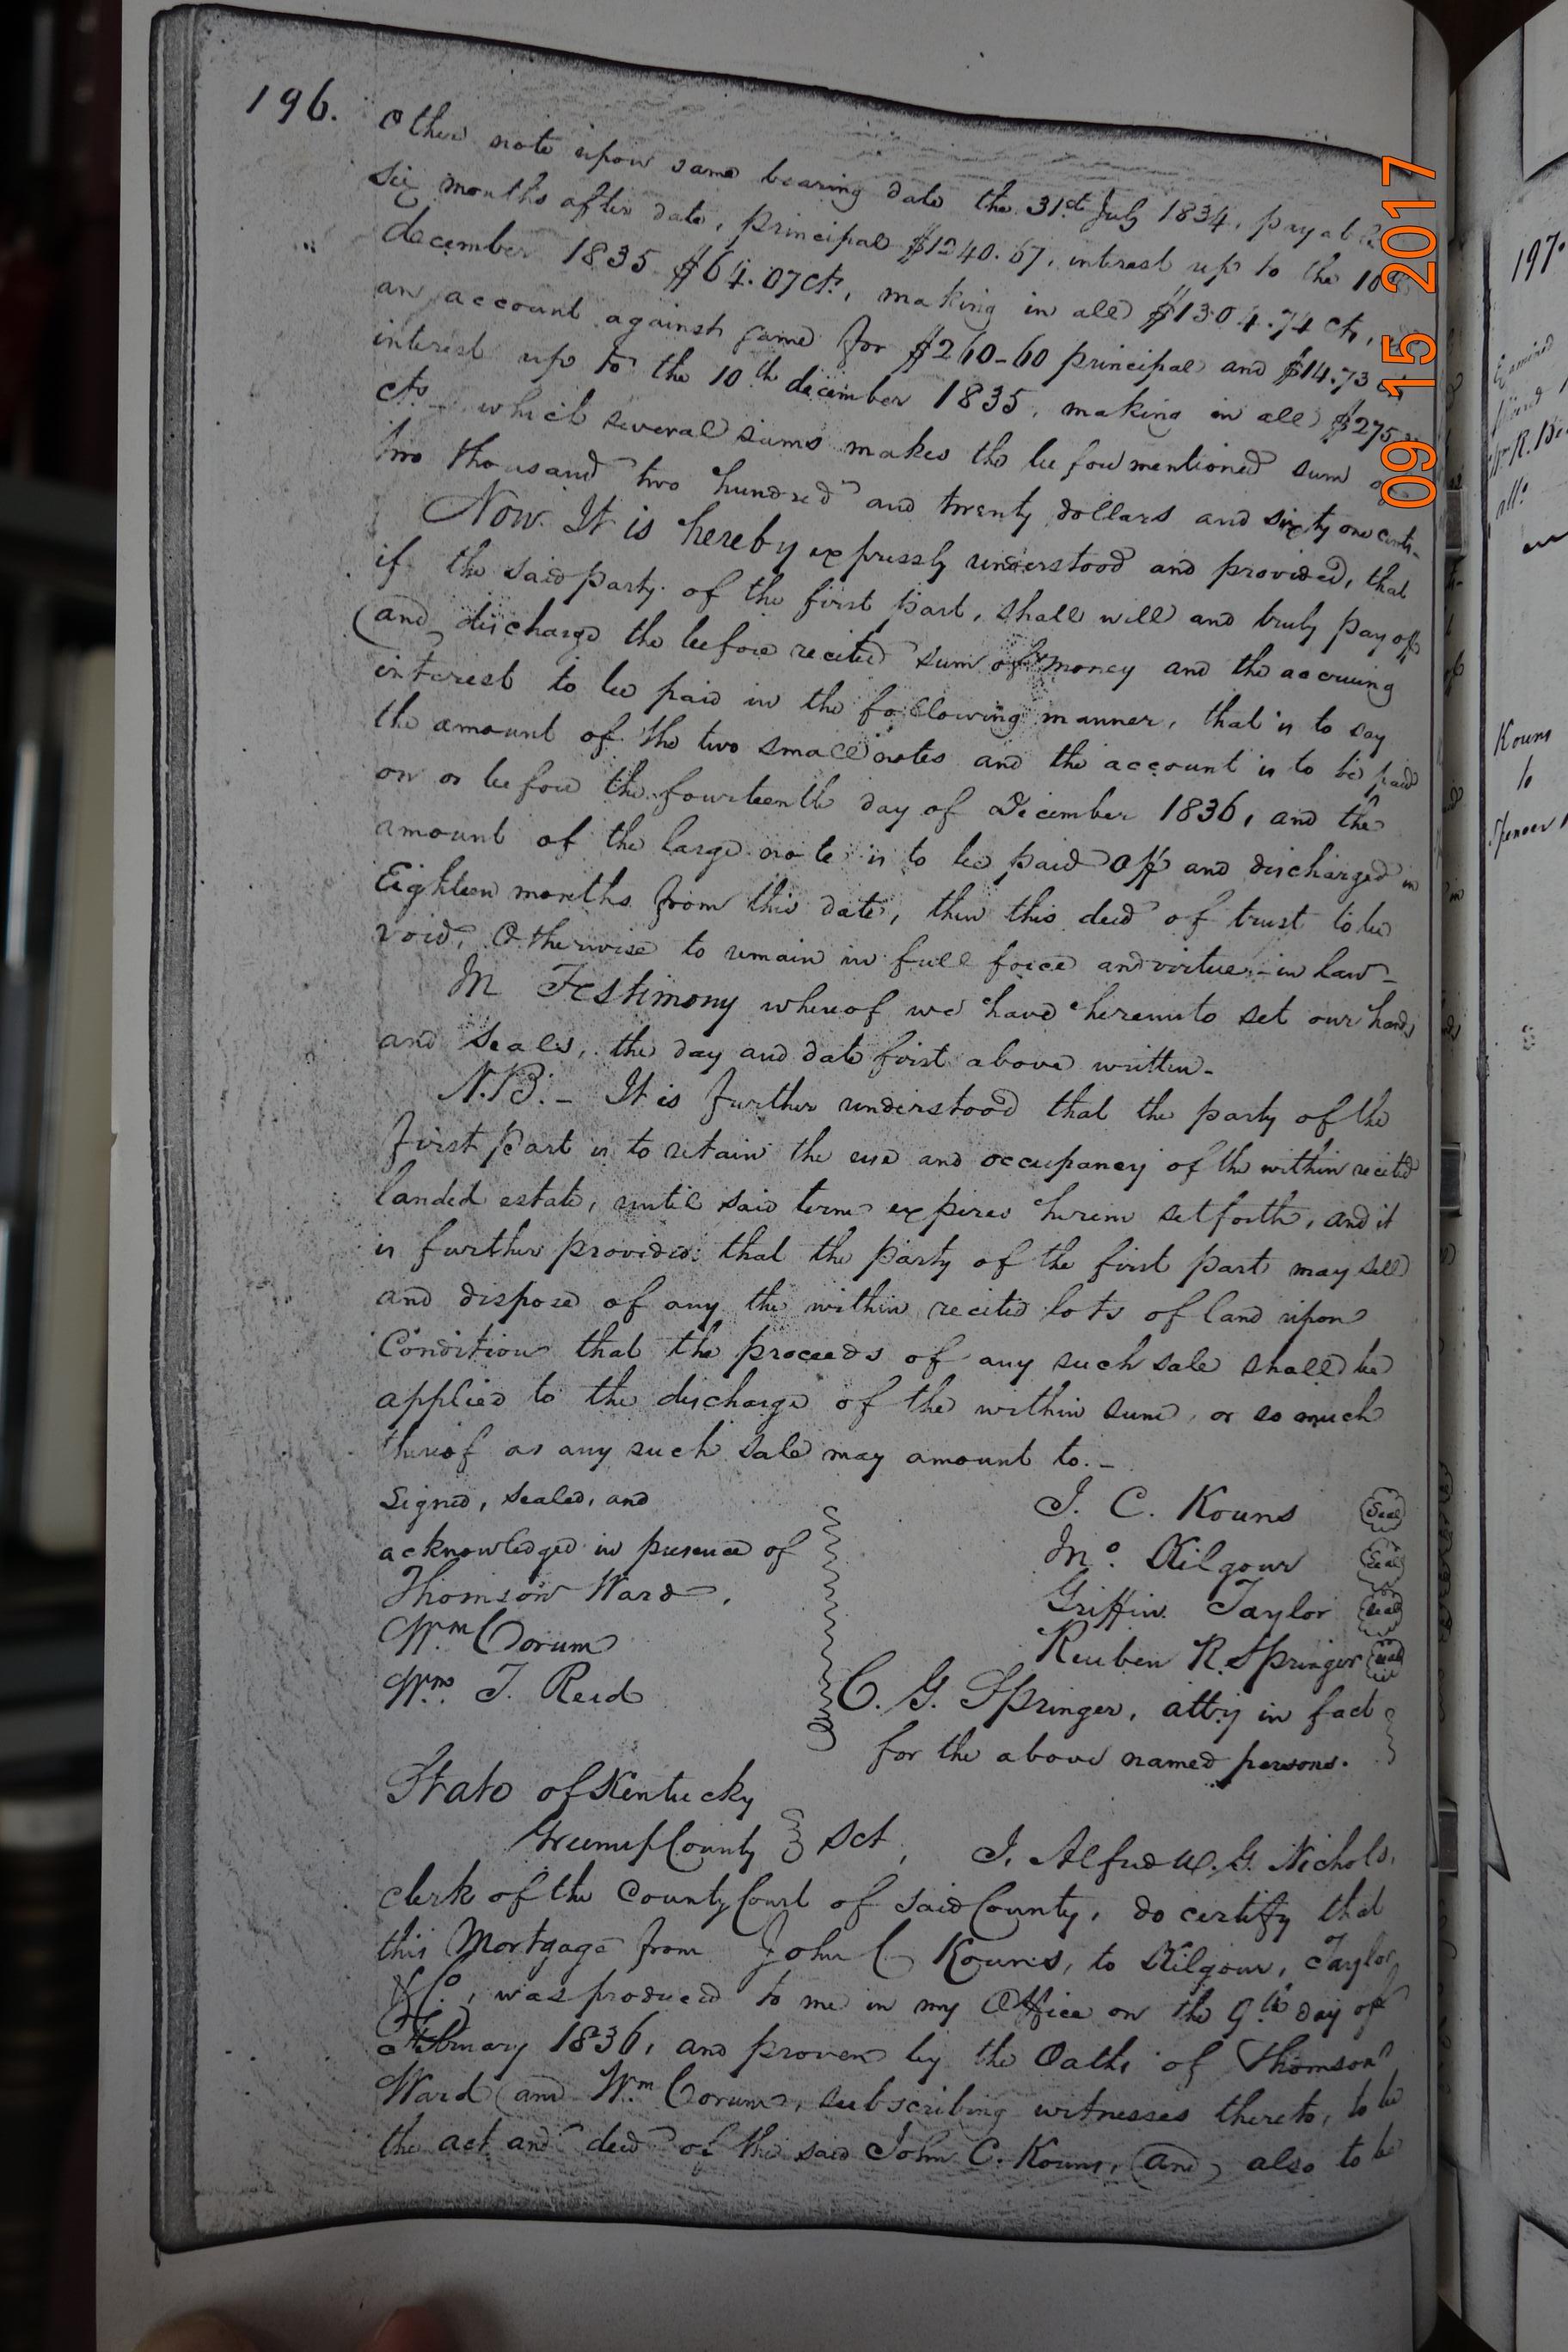 196.
Other note upon same bearing date the 31st July 1834, payable
six months after date, principal $1240.67, interest up to the 10th
december 1835 $64.07 cts, making in all $1304.74 cts,
an account against same for $260-60 principal and $14.73
interest up to the 10th december 1835, making in all $275
cts - which several sums makes the before mentioned sum of
two thousand two hundred and twenty dollars and sixty one cents-
Now. It is hereby expressly understood and provided, that
if the said party of the first part, shall will and truly pay off
(and discharge the before recited sum of money and the accruing
interest to be paid in the following manner, that is to say
the amount of the two small notes and the account is to be paid
on or before the fourteenth day of December 1836, and the
amount of the large note is to be paid off and discharged in
Eighteen months from this date, then this deed of trust to be
void, Otherwise to remain in full force and virtue - in law -
In Testimony whereof we have hereunto set our hands
and Seals, the day and date first above written -
N.B. - It is further understood that the party of the
first part is to retain the use and occupancy of the within recited
landed estate, until said term expires herein set forth, and it
is further provided that the party of the first part may sell
and dispose of any the within recited lots of land upon
Condition that the proceeds of any such sale shall be
applied to the discharge of the within sum, or so much
thereof as any such sale may amount to. -
Signed, sealed, and
acknowledged in presence of
Thomson Ward.
Wm Corum
Wm. T. Reid
J. C. Kouns Seal
Jno. Kilgour Seal
Griffin Taylor Seal
Reuben R. Springer Seal
C. G. Springer, atty in fact
for the above named persons.
State of Kentucky
Greenup County } Sct, I, Alfred W. G. Nichols,
clerk of the County Court of said County, do certify that
this Mortgage from John C Kouns, to Kilgour, Taylor
& Co, was produced to me in my Office on the 9th day of
February 1836, and proven by the Oaths of Thomson
Ward and Wm Corum, subscribing witnesses thereto, to be
the act and deed of the said John C. Kouns, (and) also to be
09 15 2017
197.
Examined
Wm R.
Kouns
to